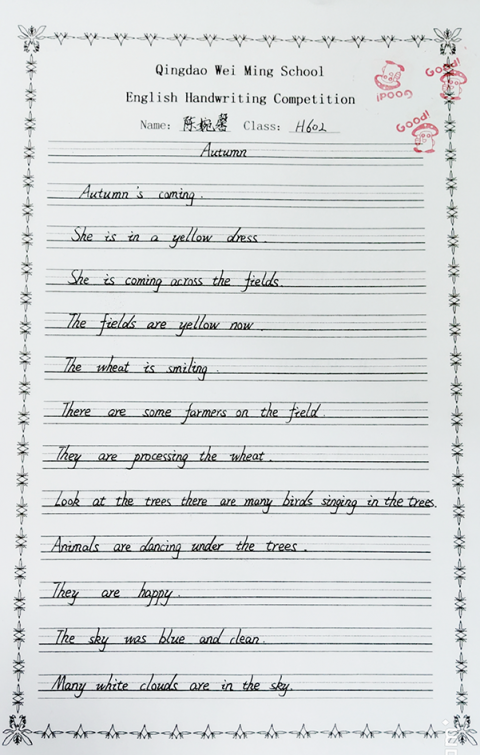 Qingdao Wei Ming School
English Handwriting Competition
Good!
Good!
Good!
Name: 陈婉馨 Class: H602
Autumn
Autumn's coming.
She is in a yellow dress.
She is coming across the fields.
The fields are yellow now.
The wheat is smiling.
There are some farmers on the field.
They are processing the wheat.
Look at the trees there are many birds singing in the trees.
Animals are dancing under the trees.
They are happy.
The sky was blue and clean.
Many white clouds are in the sky.